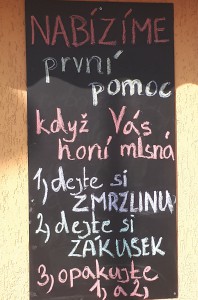 NABÍZÍME
první
pomoc
když Vás
honí mlsná
1, dejte si
ZMRZLINU
2, dejte si
ZÁKUSEK
3, opakujte
1, a 2,